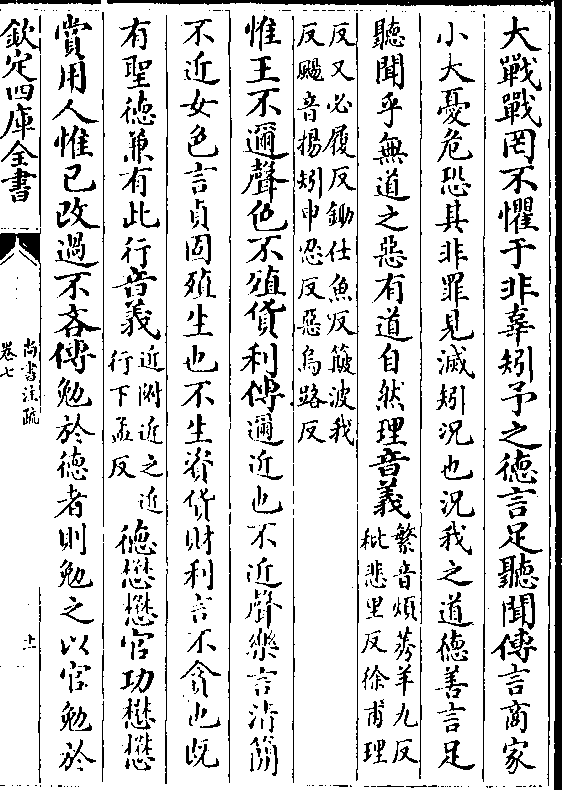 大戰戰罔不懼于非辜矧予之德言足聽聞傳言商家
小大憂危恐其非罪見滅矧況也況我之道德善言足
聽聞乎無道之惡有道自然理音義
繁音煩莠羊九反
秕悲里反徐甫理
反又必履反鋤仕魚反簸波我
反颺音揚矧申忍反惡烏路反
惟王不邇聲色不殖貨利傳邇近也不近聲樂言清簡
不近女色言貞固殖生也不生資貨財利言不貪也既
有聖德兼有此行音義
近附近之近
行下孟反
德懋懋官功懋懋
賞用人惟已改過不吝傳勉於德者則勉之以官勉於
欽定四庫全書
尚書注疏
卷七
十一